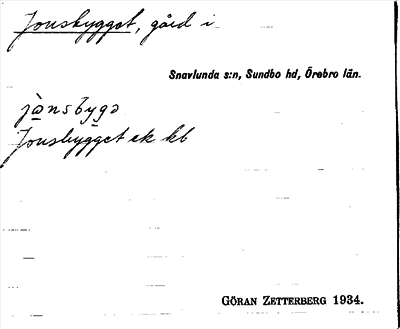 Jonsbygget, gård i
Snavlunda s:n, Sundbo hd, Örebro län.
jònsby̆gə
Jonsbygget ek kb
GÖRAN ZETTERBERG 1934.